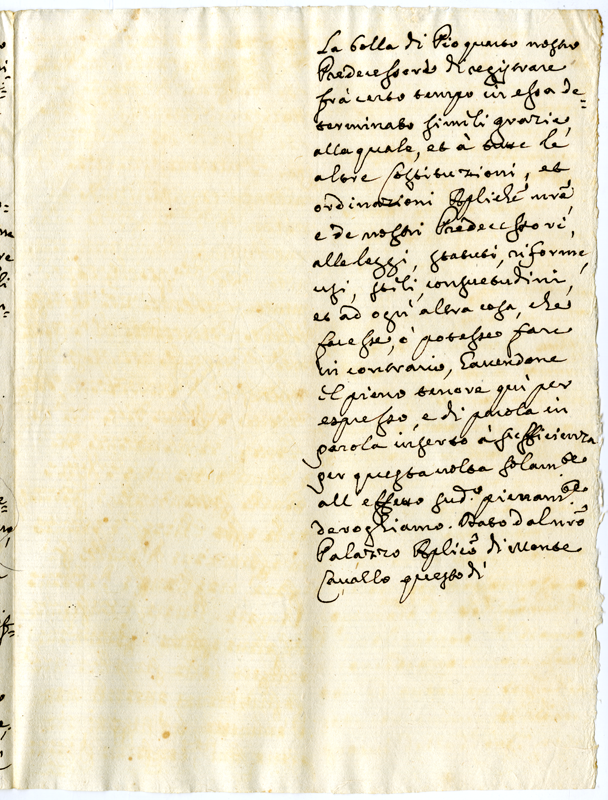 La bolla di Pio quarto nostro
Predecessore di registrare
frà certo tempo in essa de=
terminato simili grazie,
alla quale, et à tutte le
altre Costituzioni, et
ordinazioni Aplichẽ nrẽ,
e de nostri Predecessori,
alle leggi, statuti, riforme,
usi, stili, consuetudini,
et ad ogni altra cosa, che
facesse, ò potesse fare
in contrario, havendone
il pieno tenore quì per
espresso, e di parola in
parola inserto à sufficienza
per questa volta solamte
all' effetto sudo. pienamte
deroghiamo. Dato dal nrõ
Palazzo Aplicõ di Monte
Cavallo questo dì